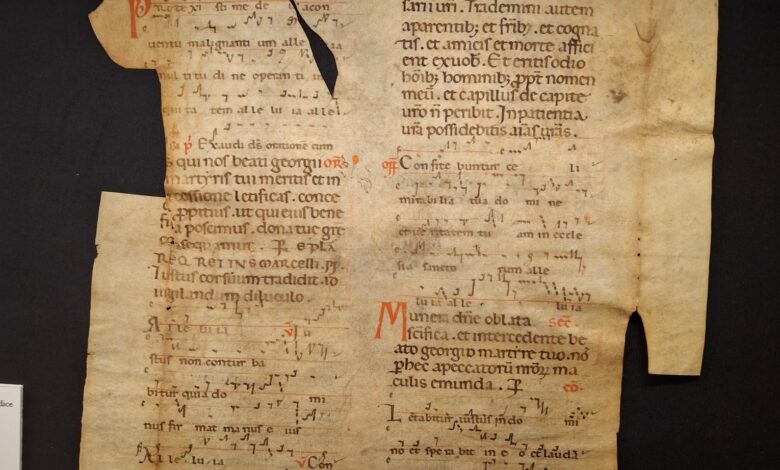 Protexi sti me de a con
uentu malignanti um alle
mul ti tu di ne operan ti u
quita tem al le lu ia al le l.
p Exaudi ds orationē cum
s qui nos beati georgii OR
martyris tui meritis et in
cessione letificas. conce
ppitius. ut qui eius bene
a poscimus. dona tue gre
asequamur. P EPLA
REQRET IN S MARCELLI. PP
Iustus cor suum tradidit ad
uigilandum diluculo.
Al le lu ia V Iu
stus non contur ba
bitur quia do mi
nus fir mat manus e ius
Al le lu ia V Con
dice
sani uri. Trademini autem
aparentib; et frib; . et cogna
tis. et amicis et morte affici
ent ex uob. Et eritis odio
hōib; hominib; ppt nomen
meū. et capillus de capite
uro n̄ peribit. In patientia
ura possidebitis aīas uras.
OFF Con fite buntur ce li
mirabilia tua do mi ne
et ueritatem tu am in eccle
sia sancto rum alle
lu ia al le lu ia
Munera dn̄e oblata SEC
scifica. et intercedente be
ato georgio martire tuo. no
p hec apeccatorū nror ma
culis emunda. P CO
Letabitur iustus in do mi
no et spe ra bit in e o et laudā